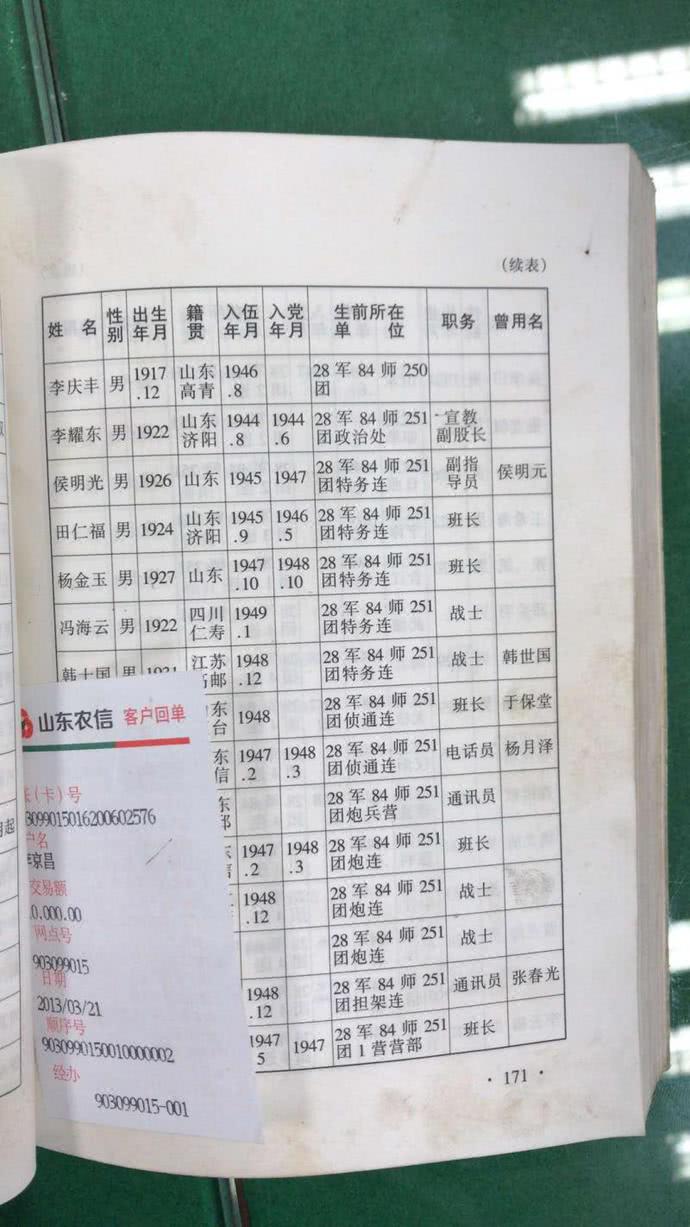 （续表）
姓 名 性别 出生年月 籍贯 入伍年月 入党年月 生前所在单位 职务 曾用名
李庆丰 男 1917.12 山东高青 1946.8 28军84师250团
李耀东 男 1922 山东济阳 1944.8 1944.6 28军84师251团政治处 宣教副股长
侯明光 男 1926 山东 1945 1947 28军84师251团特务连 副指导员 侯明元
田仁福 男 1924 山东济阳 1945.9 1946.5 28军84师251团特务连 班长
杨金玉 男 1927 山东 1947.10 1948.10 28军84师251团特务连 班长
冯海云 男 1922 四川仁寿 1949.1 28军84师251团特务连 战士
韩士国 男 1931 江苏高邮 1948.12 28军84师251团特务连 战士 韩世国
东台 1948 28军84师251团侦通连 班长 于保堂
东信 1947.2 1948.3 28军84师251团侦通连 电话员 杨月泽
东 28军84师251团炮兵营 通讯员
1947.2 1948.3 28军84师251团炮连 班长
1948.12 28军84师251团炮连 战士
28军84师251团炮连 战士
1948.12 28军84师251团担架连 通讯员 张春光
1947 5 1947 28军84师251团1营营部 班长
·171·
山东农信 客户回单
（卡）号
3099015016200602576
户名
京昌
交易额
0,000.00
网点号
903099015
日期
2013/03/21
顺序号
9030990150010000002
经办
903099015-001